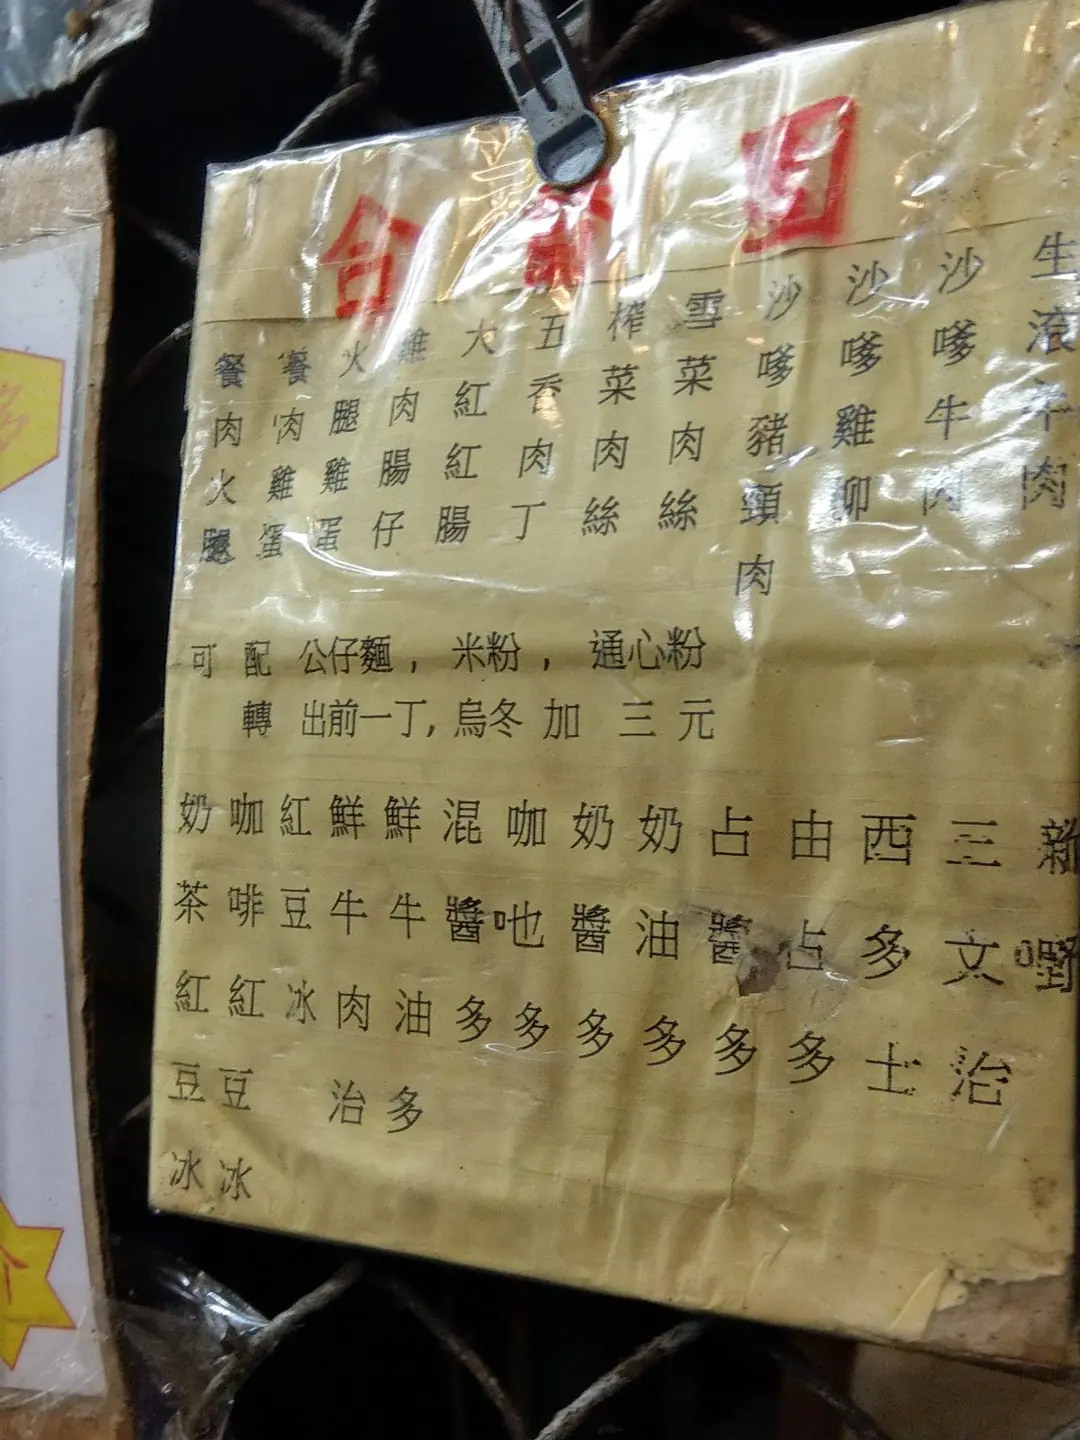 生滾牛肉
沙嗲牛肉
沙嗲雞柳
沙嗲豬頸肉
雪菜肉絲
榨菜肉絲
五香肉丁
大紅紅腸
雞肉腸仔
火腿雞蛋
餐肉雞蛋
餐肉火腿
可配 公仔麵，米粉，通心粉
轉 出前一丁,烏冬 加 三元
新嘢
三文治
西多士
由占多
占醬多
奶油多
奶醬多
咖吔多
混醬多
鮮牛油多
鮮牛肉治
紅豆冰
咖啡紅豆冰
奶茶紅豆冰